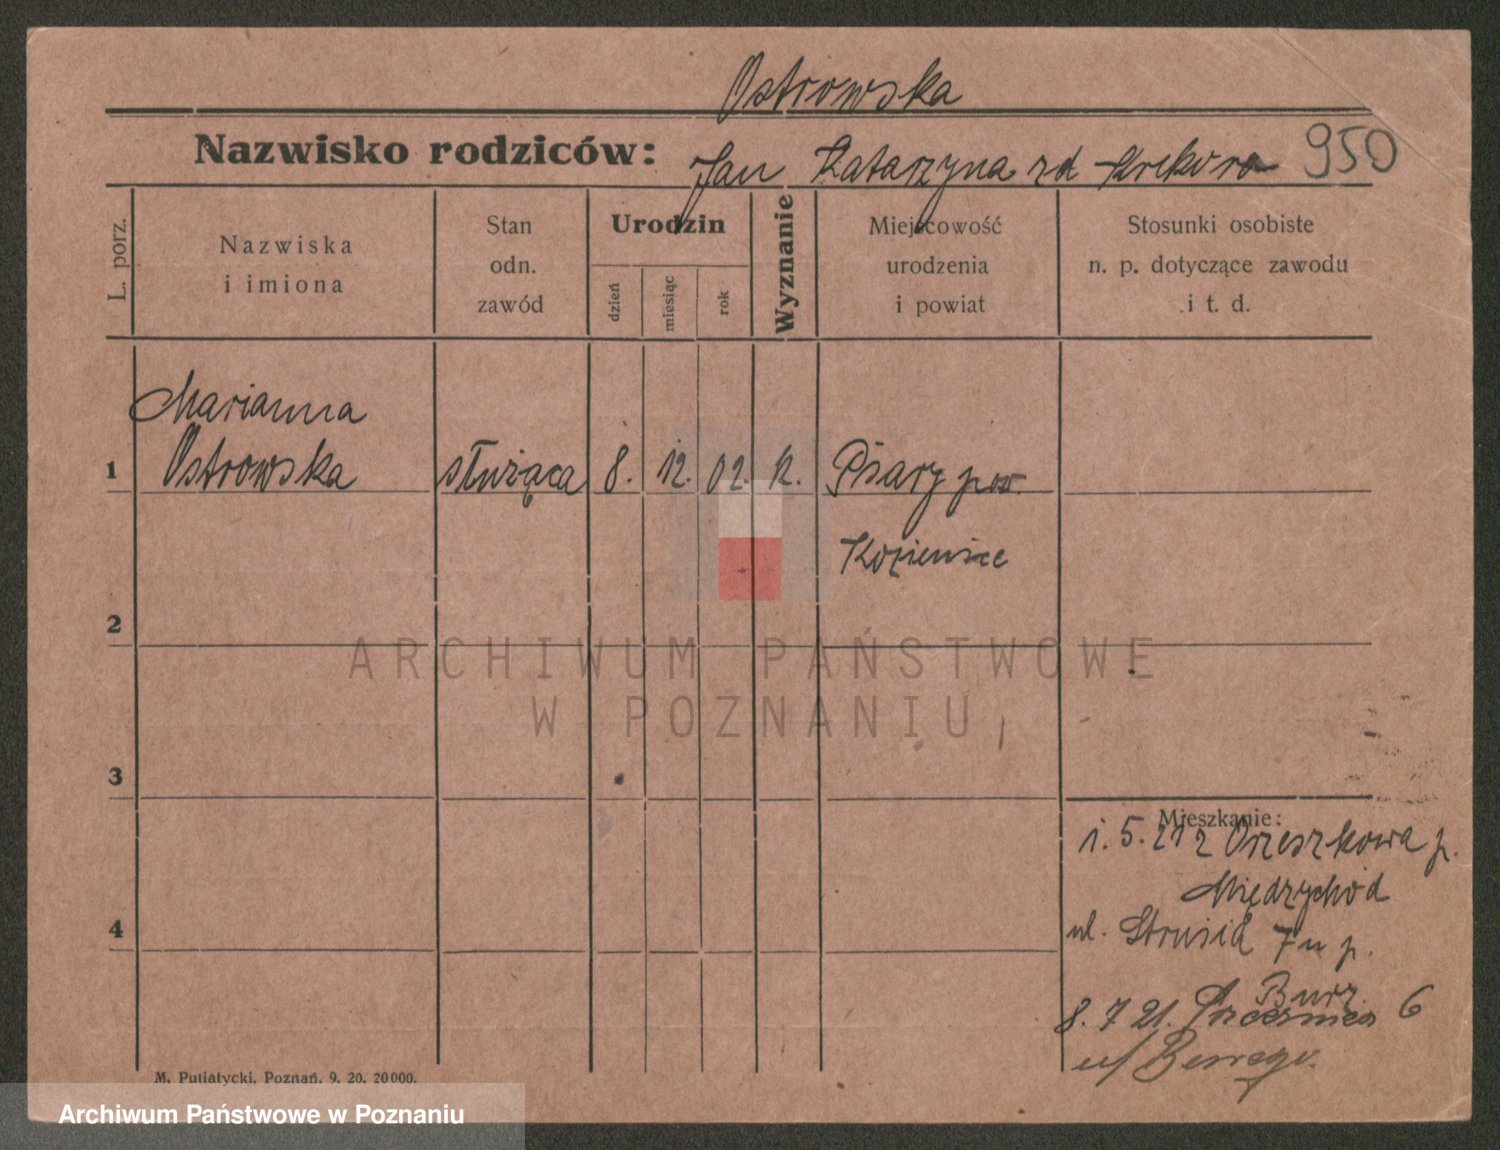 Ostrowska
Nazwisko rodziców: Jan Katarzyna zd 950
L. porz.
Nazwiska
i imiona
Stan
odn.
zawód
Urodzin
dzień
miesiąc
rok
Wyznanie
Miejscowość
urodzenia
i powiat
Stosunki osobiste
n. p. dotyczące zawodu
i t. d.
Marianna
1 Ostrowska służąca 8. 12. 02. k. Pisary pow.
Kozienice
2
3
4
ARCHIWUM PAŃSTWOWE
W POZNANIU
Mieszkanie:
1. 5. 21 z Orzeszkowa p.
Międzychód
ul. Strusia 7 u p.
Burz.
8. 7 21. 6
ul
M. Putiatycki, Poznań, 9. 20. 20000.
Archiwum Państwowe w Poznaniu